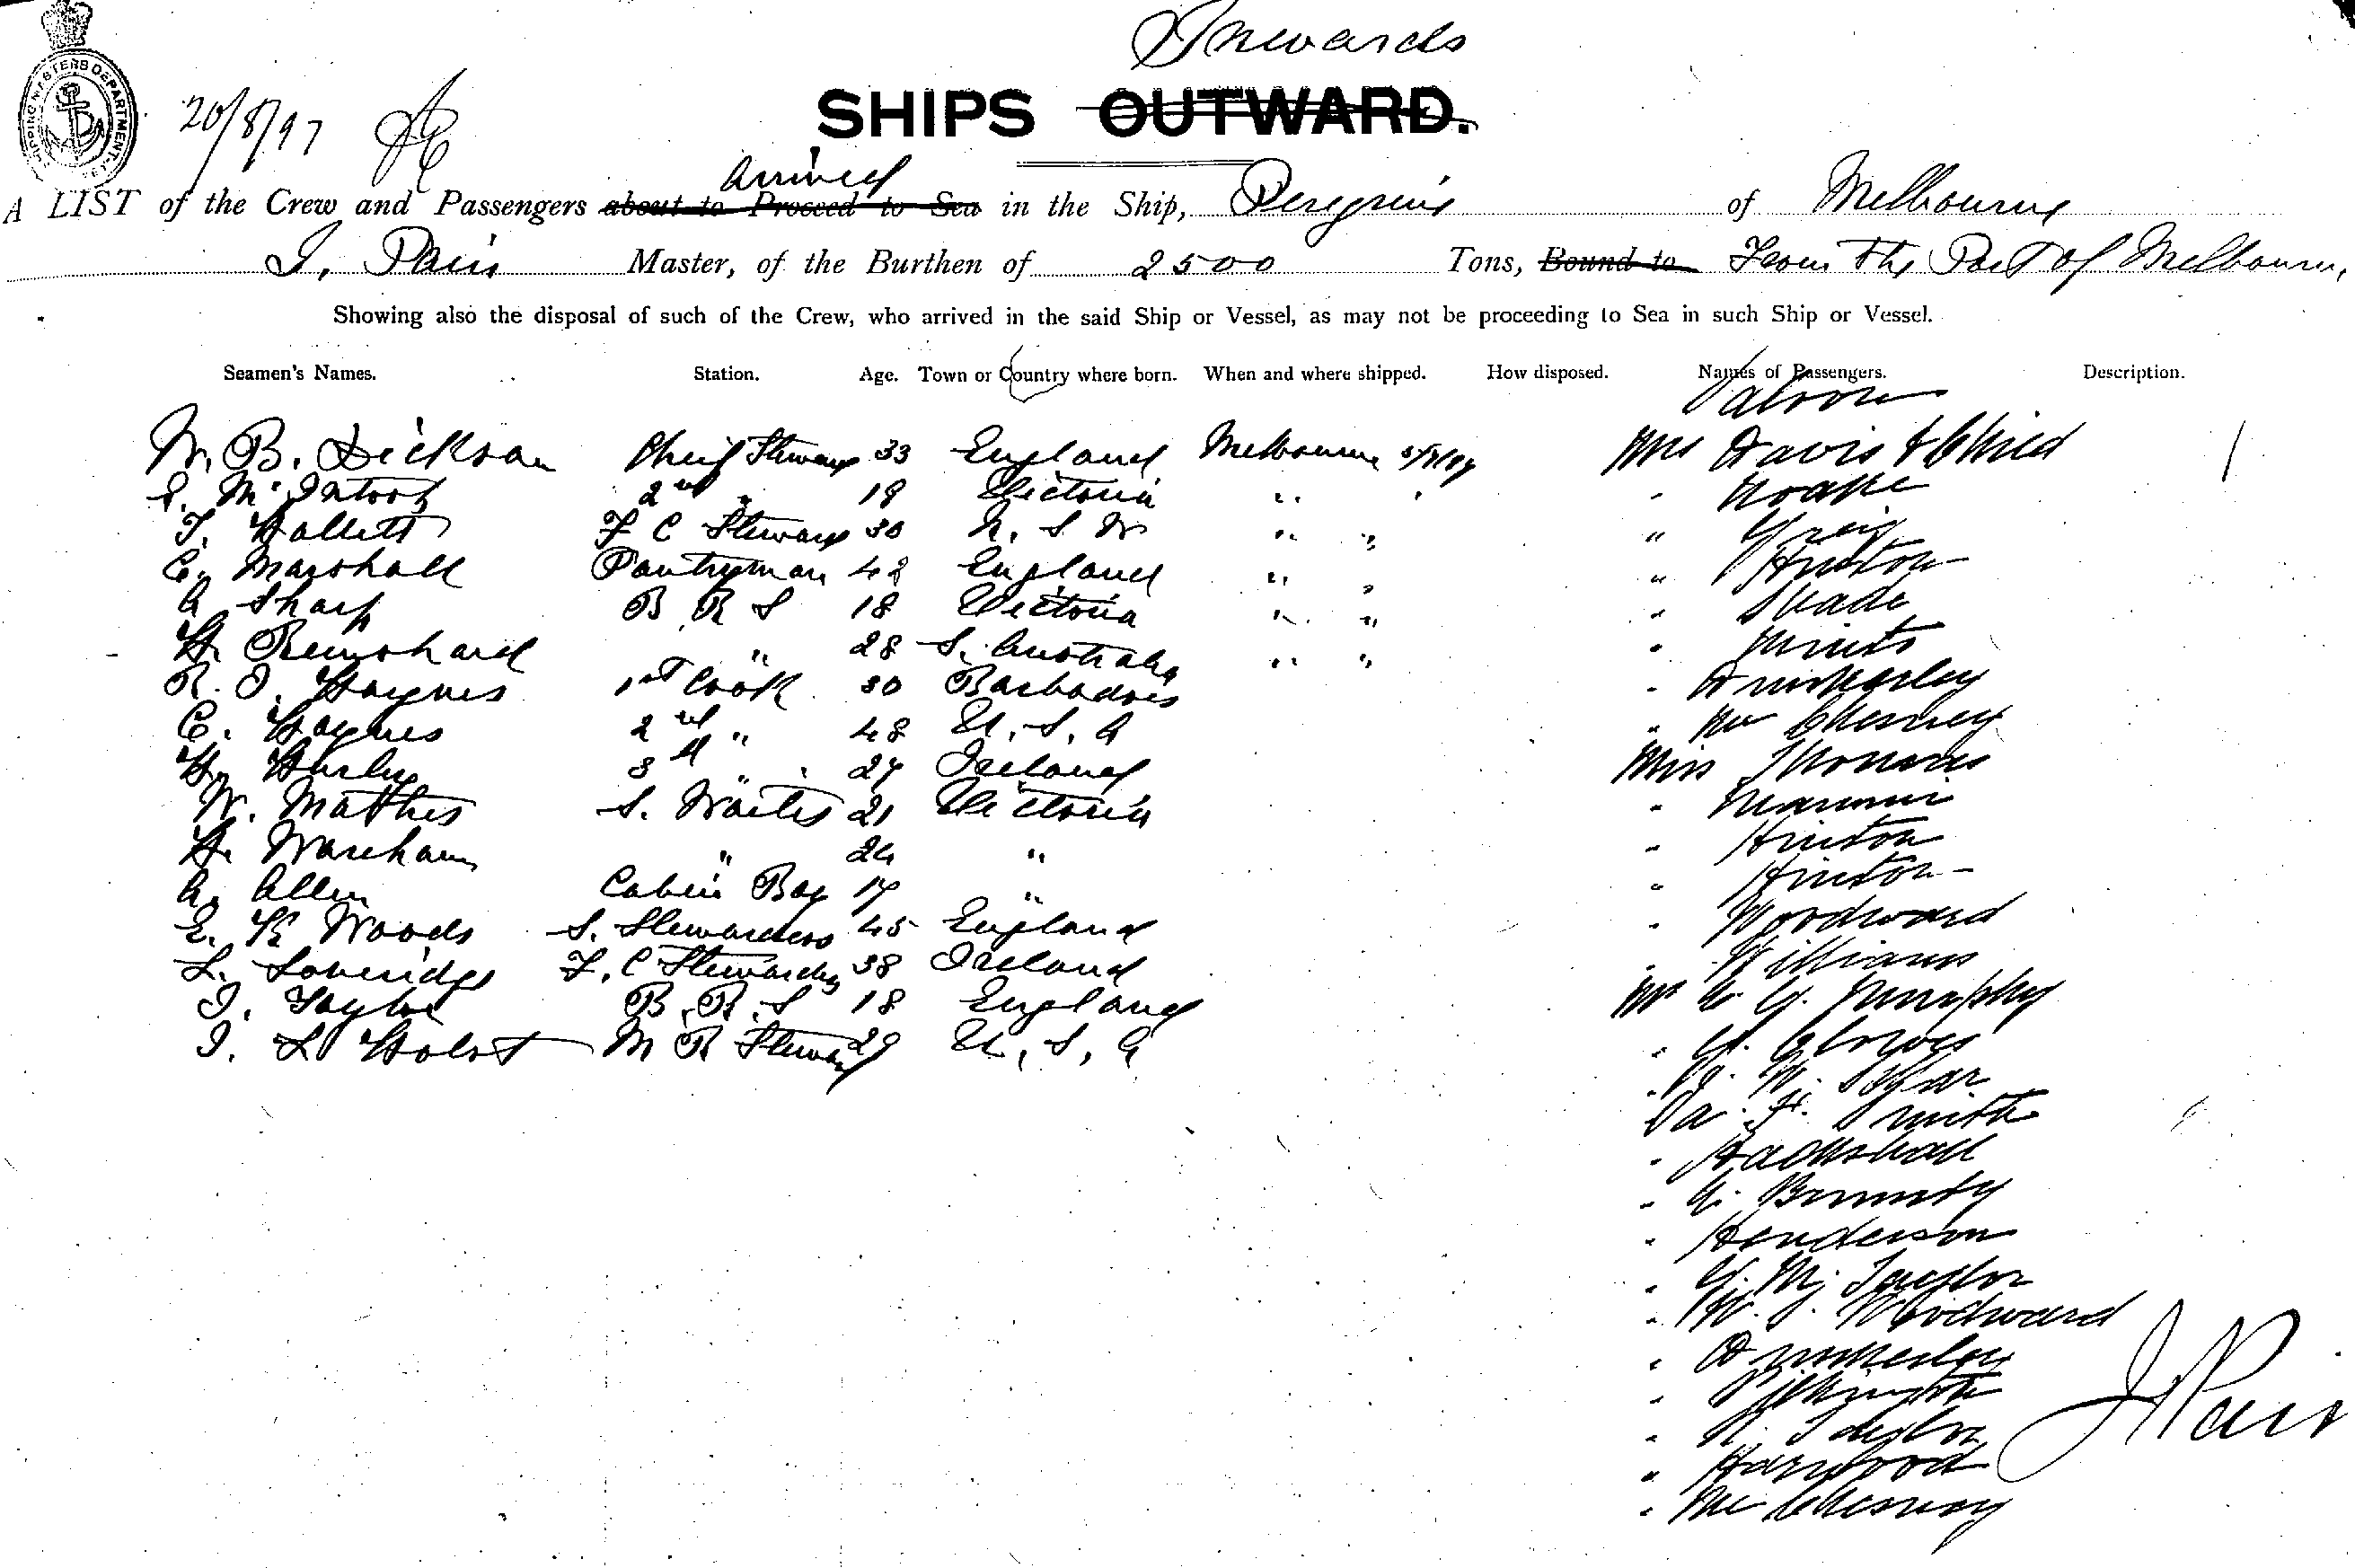 Inwards
SHIPS OUTWARD.
20/8/97
arrived
A LIST of the Crew and Passengers about to Proceed to Sea in the Ship, Peregrine of Melbourne
Master, of the Burthen of 2500 Tons, Bound to From The Port of Melbourne
Showing also the disposal of such of the Crew, who arrived in the said Ship or Vessel, as may not be proceeding to Sea in such Ship or Vessel.
Seamen's Names. Station. Age. Town or Country where born. When and where shipped. How disposed. Names of Passengers. Description.
Saloon
W. B. Dickson Chief Steward 33 England Melbourne Mrs Davis & Child 1
McIntosh 2nd " 19 Victoria " "
T. Hallett F C Steward 30 N. S W " " " Greig
C. Marshall Pantryman 42 England " " " Hinton
A Sharp B R S 18 Victoria " " "
H. " 28 S. Australia " " "
R. J. Haynes 1st Cook 30 Barbadoes "
C. Haynes 2nd " 48 U. S. A " McChesney
H. Hurley 3rd " 27 Ireland Miss Thomas
W. Matthes S. Waiter 21 Victoria "
H. Wareham " 24 " " Hinton
A. Allen Cabin Boy 17 " " Hinton
E. K Woods S. Stewardess 45 England " Woodward
L. Loveridge F. C Stewardess 38 Ireland " Williams
J. Taylor B. R. S 18 England Mr Murphy
J. L Holst M R Steward 29 U. S. A " Clowes
" Smith
" Hackshall
" Henderson
" Taylor
" W. J. Woodward
" Pilkington
" Taylor
" Harwood
" McChesney